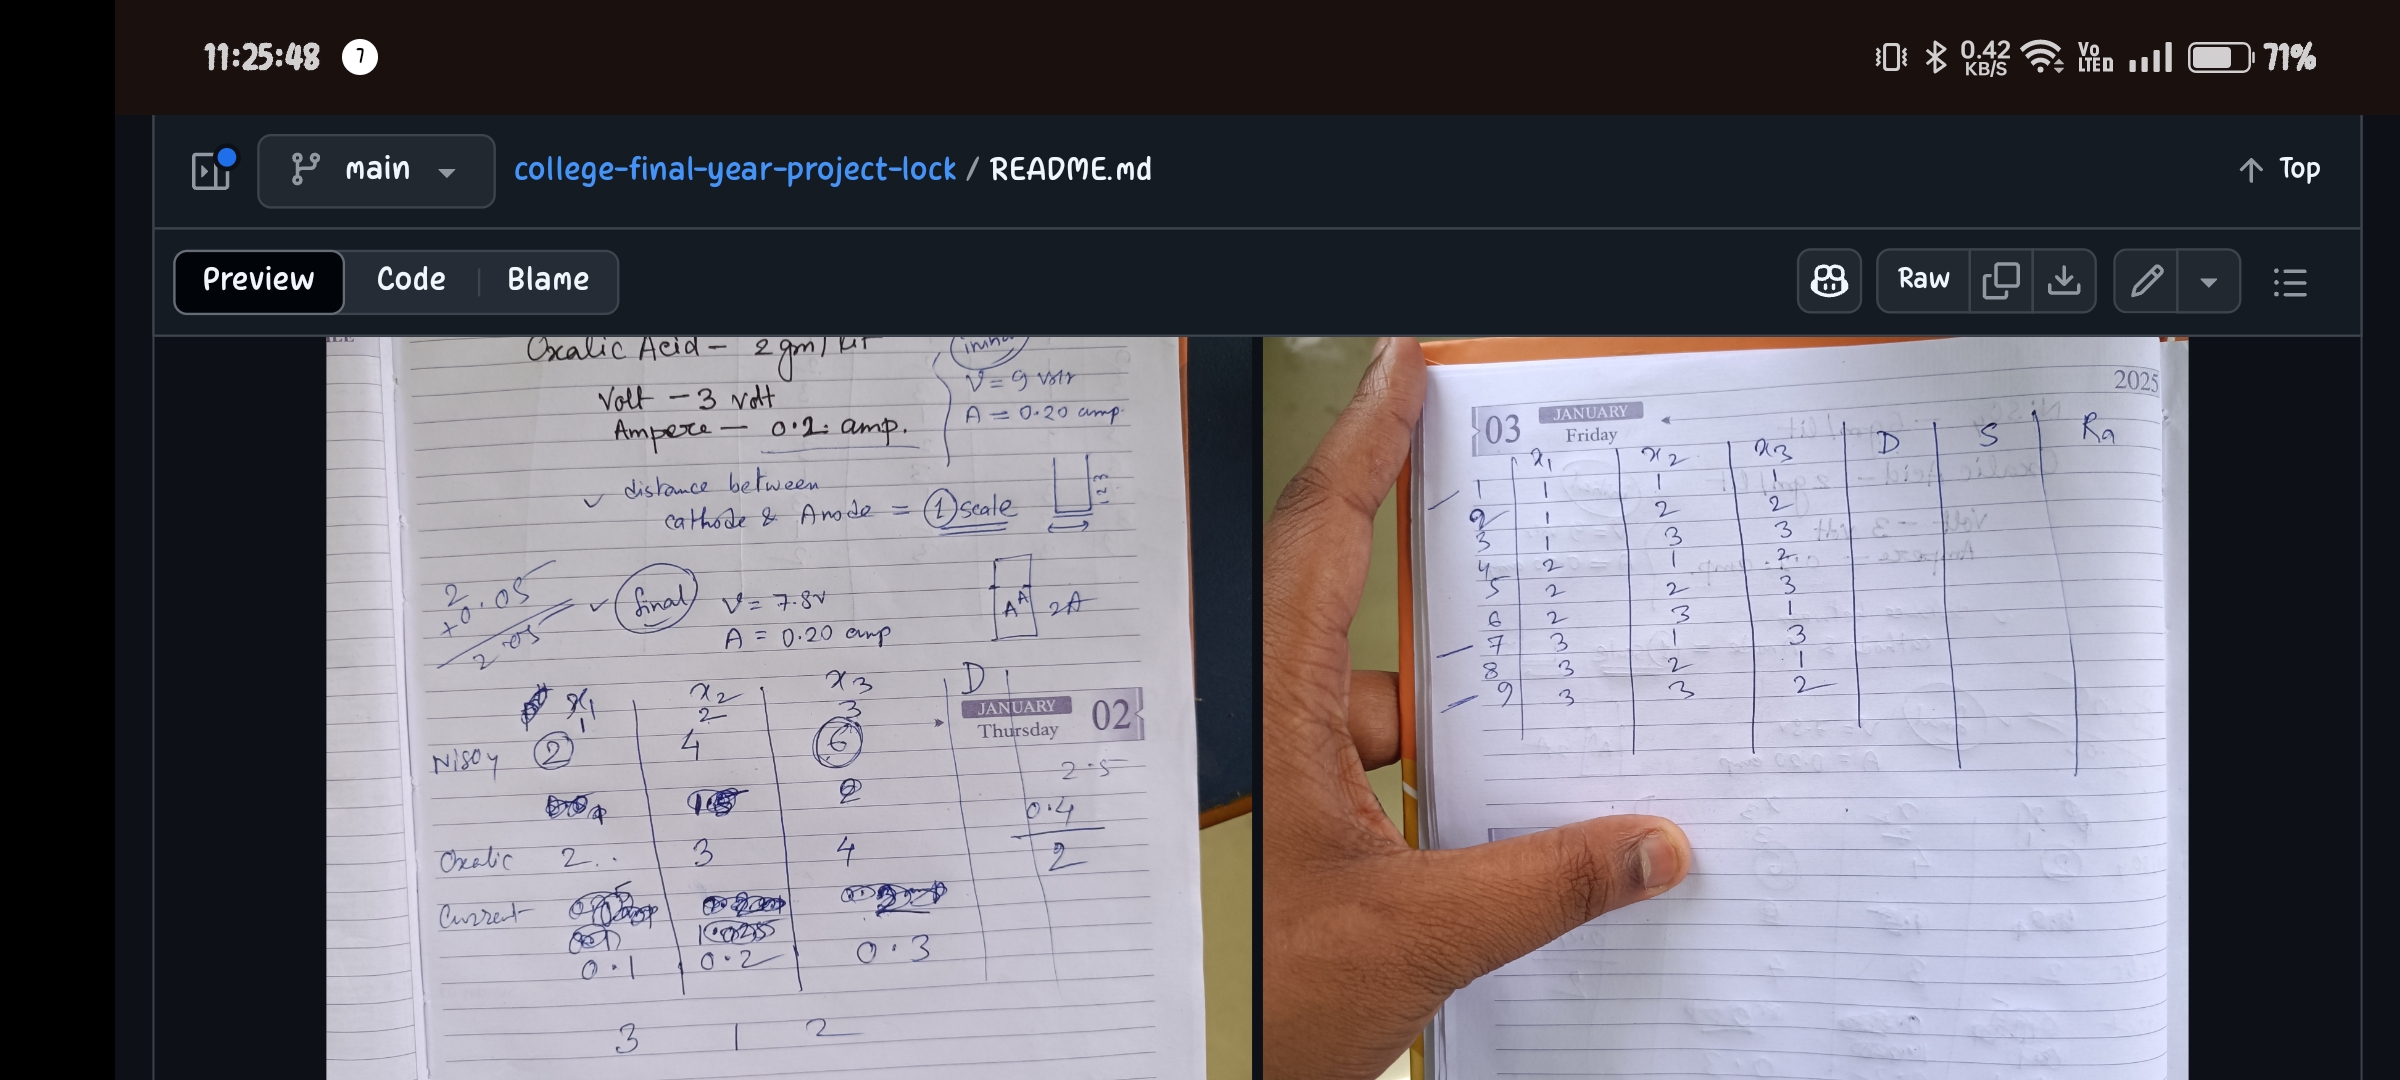 11:25:48 7 0.42 KB/S Vo LTED 71%
main college-final-year-project-lock / README.md Top
Preview Code Blame Raw
Oxalic Acid - 2 gm/
Volt - 3 volt
Ampere - 0.2 amp.
V = 9 volt
A = 0.20 amp.
✓ distance between
cathode & Anode = 1 scale
1 2 3
2.05
+0
2.05
✓ final V = 7.8V
A = 0.20 amp
A A 2A
x1 x2 x3 D
1 2 3
NiSO4 2 4 6
JANUARY
Thursday 02
2.5
2
0.4
2
Oxalic 2 3 4
Current
0.1 0.2 0.3
3 1 2
2025
03 JANUARY
Friday
x1 x2 x3 D S Ra
1 1 1 1
2 1 2 2
3 1 3 3
4 2 1 2
5 2 2 3
6 2 3 1
7 3 1 3
8 3 2 1
9 3 3 2